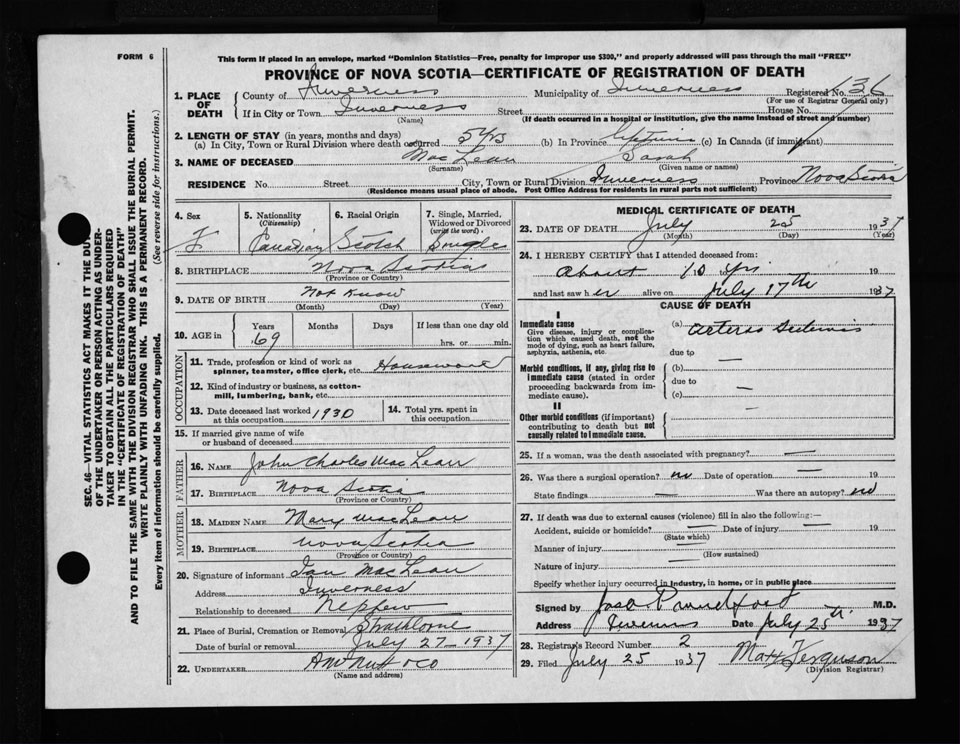 FORM 6
This form if placed in an envelope, marked "Dominion Statistics—Free, penalty for improper use $300," and properly addressed will pass through the mail "FREE"
PROVINCE OF NOVA SCOTIA—CERTIFICATE OF REGISTRATION OF DEATH
1. PLACE OF DEATH
County of Inverness Municipality of Inverness Registered No. 136
(For use of Registrar General only)
If in City or Town Inverness Street House No.
(Name) (If death occurred in a hospital or institution, give the name instead of street and number)
2. LENGTH OF STAY (in years, months and days)
(a) In City, Town or Rural Division where death occurred 5 yrs (b) In Province Lifetime (c) In Canada (if immigrant)
3. NAME OF DECEASED Mac Lean Sarah
(Surname) (Given name or names)
RESIDENCE No. Street City, Town or Rural Division Inverness Province Nova Scotia
(Residence means usual place of abode. Post Office Address for residents in rural parts not sufficient)
4. Sex
F
5. Nationality
(Citizenship)
Canadian
6. Racial Origin
Scotch
7. Single, Married, Widowed or Divorced
(write the word)
Single
8. BIRTHPLACE Nova Scotia
(Province or Country)
9. DATE OF BIRTH Not Know
(Month) (Day) (Year)
10. AGE in
Years Months Days If less than one day old
69 hrs. or min.
OCCUPATION
11. Trade, profession or kind of work as spinner, teamster, office clerk, etc. Housework
12. Kind of industry or business, as cotton-mill, lumbering, bank, etc.
13. Date deceased last worked at this occupation 1930
14. Total yrs. spent in this occupation
15. If married give name of wife or husband of deceased
FATHER
16. NAME John Charles MacLean
17. BIRTHPLACE Nova Scotia
(Province or Country)
MOTHER
18. MAIDEN NAME Mary MacLean
19. BIRTHPLACE Nova Scotia
(Province or Country)
20. Signature of informant Ian MacLean
Address Inverness
Relationship to deceased Nephew
21. Place of Burial, Cremation or Removal Strathlorne
Date of burial or removal July 27 - 1937
22. UNDERTAKER
(Name and address)
MEDICAL CERTIFICATE OF DEATH
23. DATE OF DEATH July 25 1937
(Month) (Day) (Year)
24. I HEREBY CERTIFY that I attended deceased from:
About 10 yrs 19
and last saw her alive on July 17th 1937
CAUSE OF DEATH
I
Immediate cause
Give disease, injury or complication which caused death, not the mode of dying, such as heart failure, asphyxia, asthenia, etc.
(a) Arterio
due to —
Morbid conditions, if any, giving rise to immediate cause (stated in order proceeding backwards from immediate cause).
(b)
due to —
(c)
II
Other morbid conditions (if important) contributing to death but not causally related to immediate cause.
—
25. If a woman, was the death associated with pregnancy? —
26. Was there a surgical operation? no Date of operation — 19
State findings — Was there an autopsy? no
27. If death was due to external causes (violence) fill in also the following:—
Accident, suicide or homicide? — Date of injury — 19
(State which)
Manner of injury —
(How sustained)
Nature of injury —
Specify whether injury occurred in industry, in home, or in public place
Signed by M.D.
Address Inverness Date July 25th 1937
28. Registrar's Record Number 2
29. Filed July 25 1937 Matt Ferguson
(Division Registrar)
SEC. 46—VITAL STATISTICS ACT MAKES IT THE DUTY
OF THE UNDERTAKER OR PERSON ACTING AS UNDER-
TAKER TO OBTAIN ALL THE PARTICULARS REQUIRED
IN THE "CERTIFICATE OF REGISTRATION OF DEATH"
AND TO FILE THE SAME WITH THE DIVISION REGISTRAR WHO SHALL ISSUE THE BURIAL PERMIT.
WRITE PLAINLY WITH UNFADING INK. THIS IS A PERMANENT RECORD.
Every item of information should be carefully supplied. (See reverse side for instructions.)